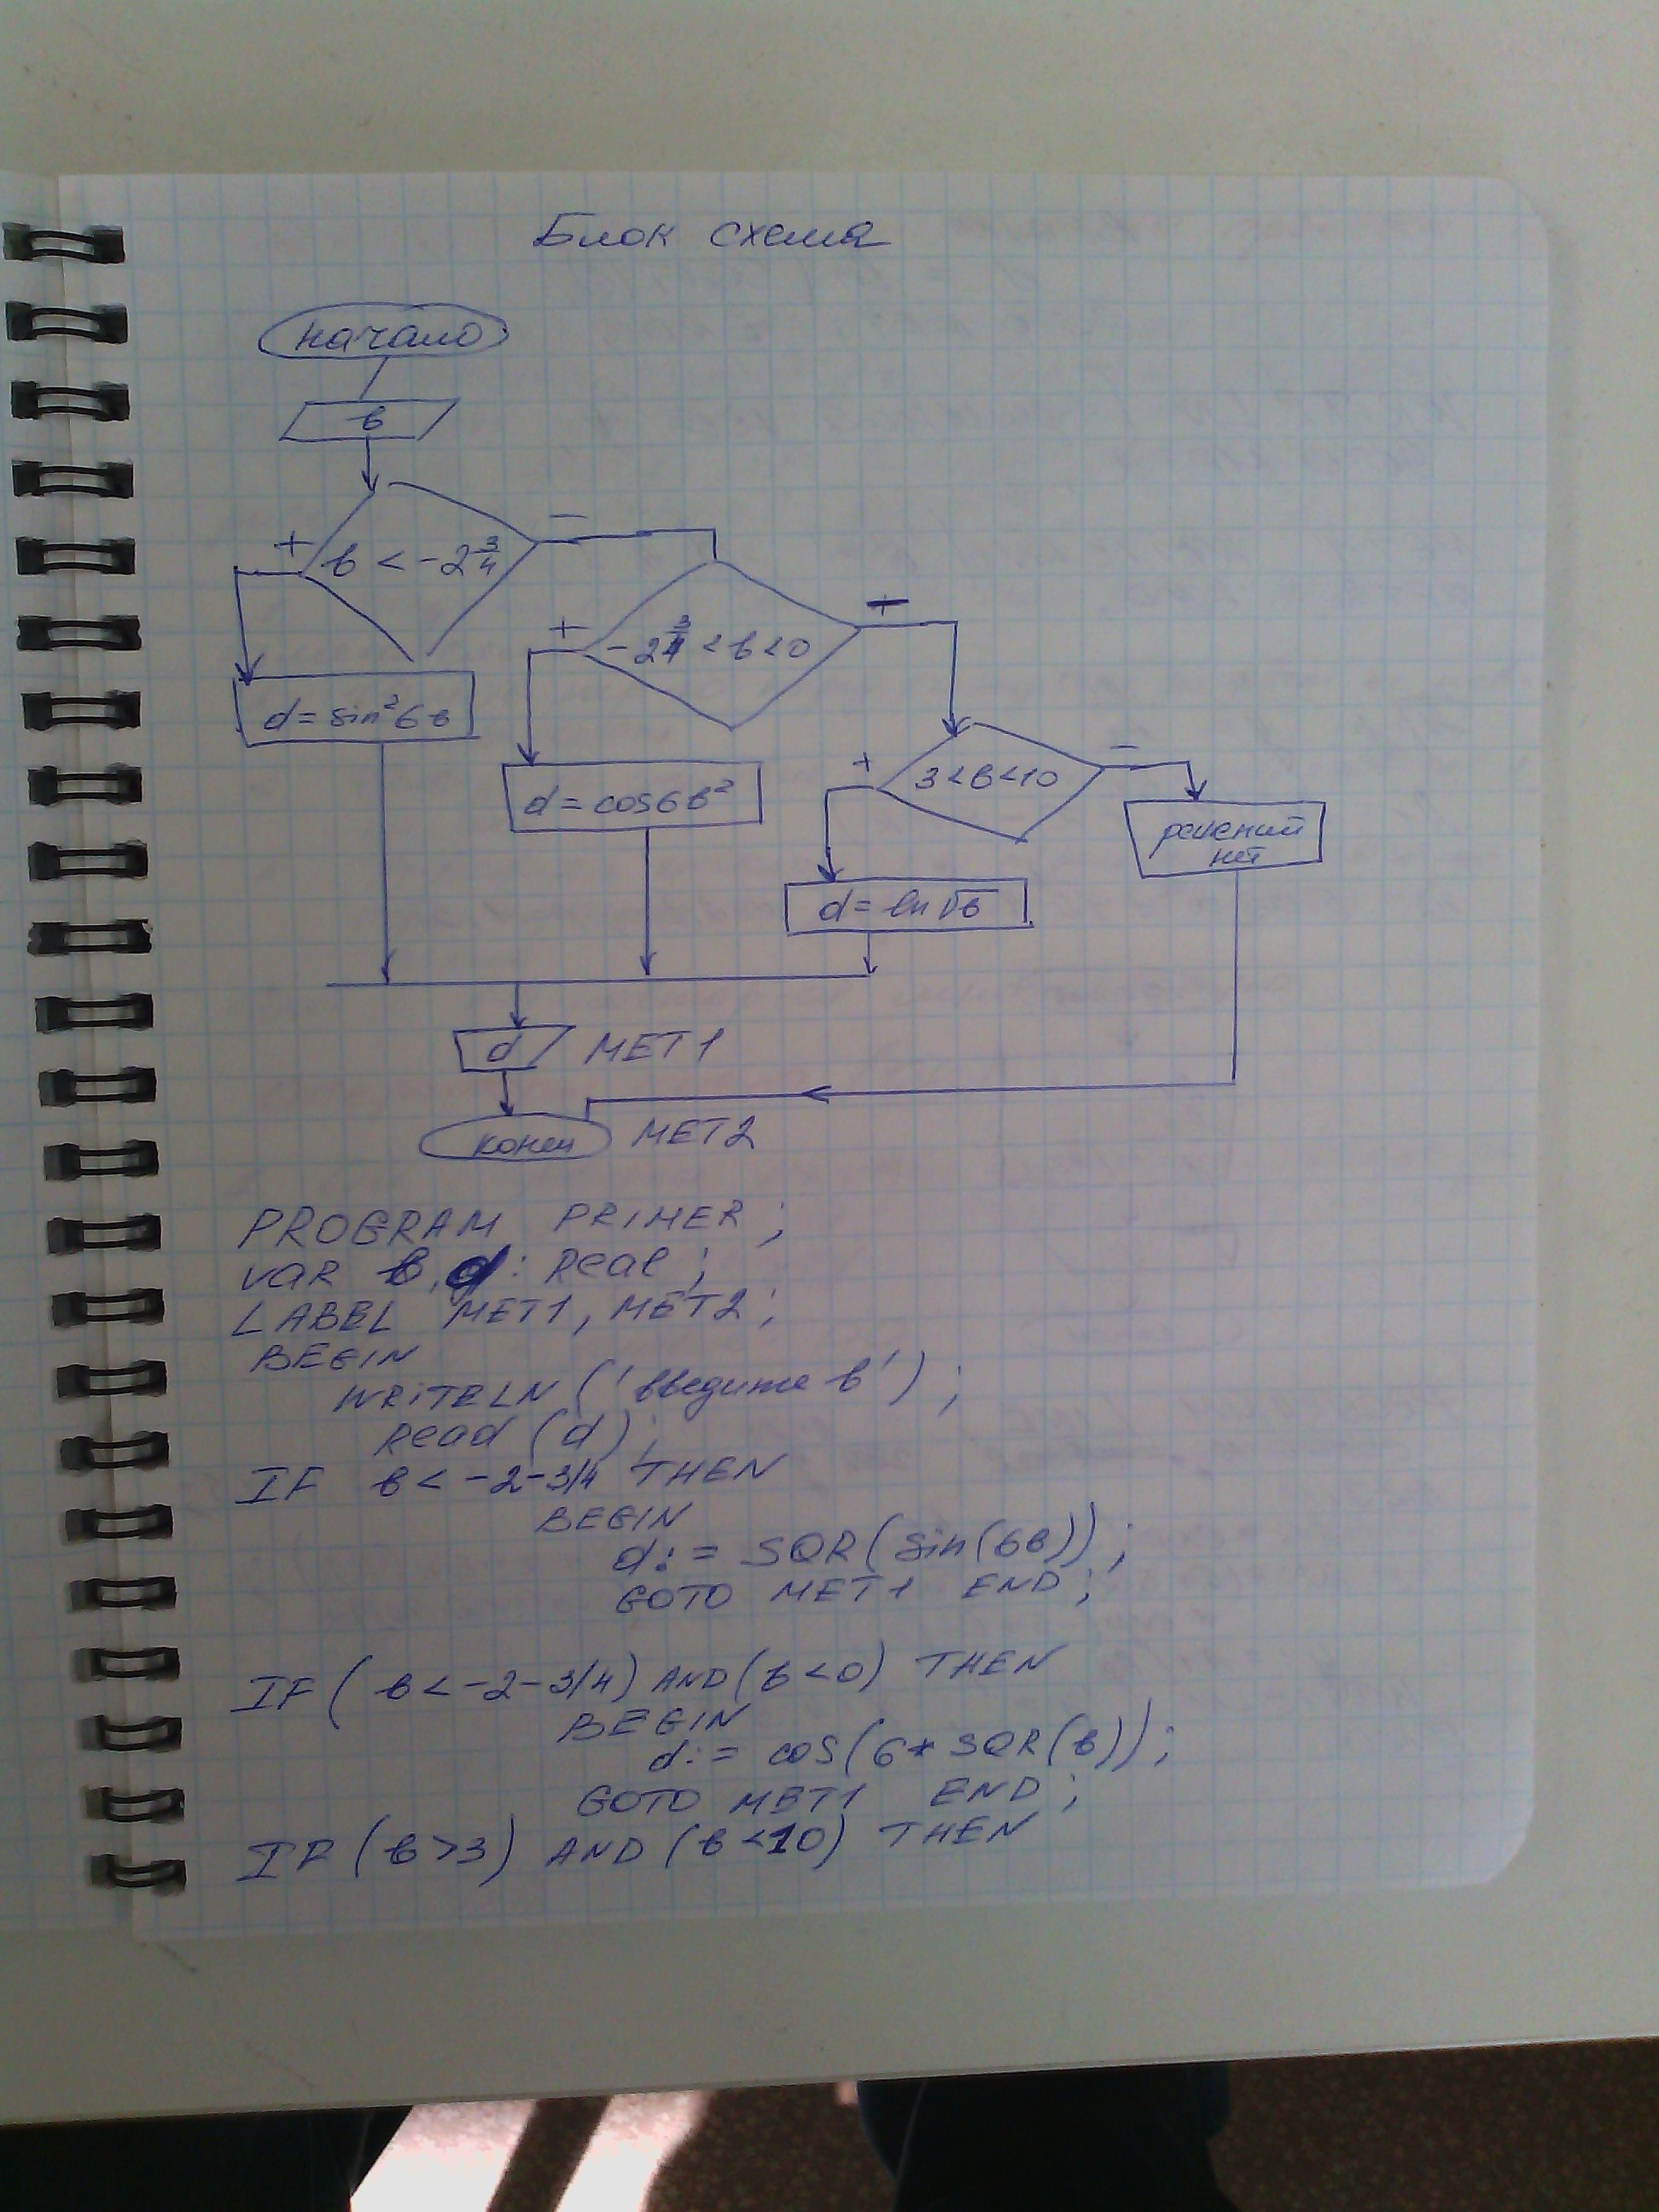 Блок схема
начало
в
+
−
в < -2 3/4
+
−
-2 3/4 < в < 0
d = sin²6в
+
−
3 < в < 10
d = cos6в²
решений
нет
d = ln √в
d MET1
конец MET2
PROGRAM PRIMER;
VAR в, d: Real;
LABEL MET1, MET2;
BEGIN
WRiTELN ('введите в');
Read (d);
IF в < -2-3/4 THEN
BEGIN
d:= SQR(sin(6в));
GOTO MET1 END;
IF (в < -2-3/4) AND (в < 0) THEN
BEGIN
d:= cos(6*SQR(в));
GOTO MET1 END;
IF (в >3) AND (в <10) THEN